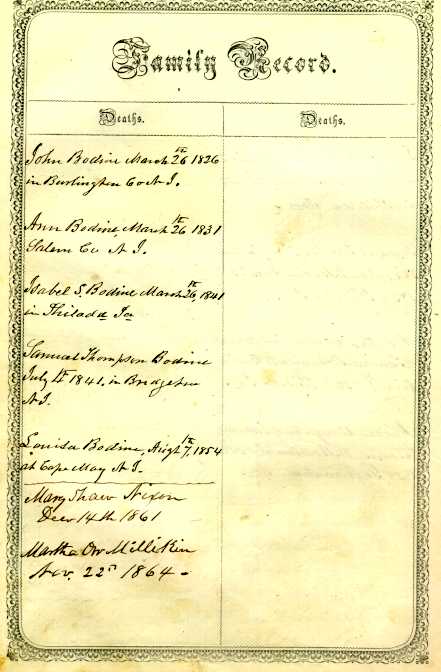 Family Record.
Deaths.
Deaths.
John Bodine March 26th 1826
in Burlington Co N J.
Ann Bodine, March 26th 1831
Salem Co N J.
Isabel S. Bodine March 26th, 1841
in Philada Pa
Samuel Thompson Bodine
July 4th 1841, in Bridgeton
N J.
Louisa Bodine, Augt 7th, 1854
at Cape May N J.
Mary Shaw Nixon
Decr 14th 1861
Martha Orr Millikin
Nov. 22n 1864.